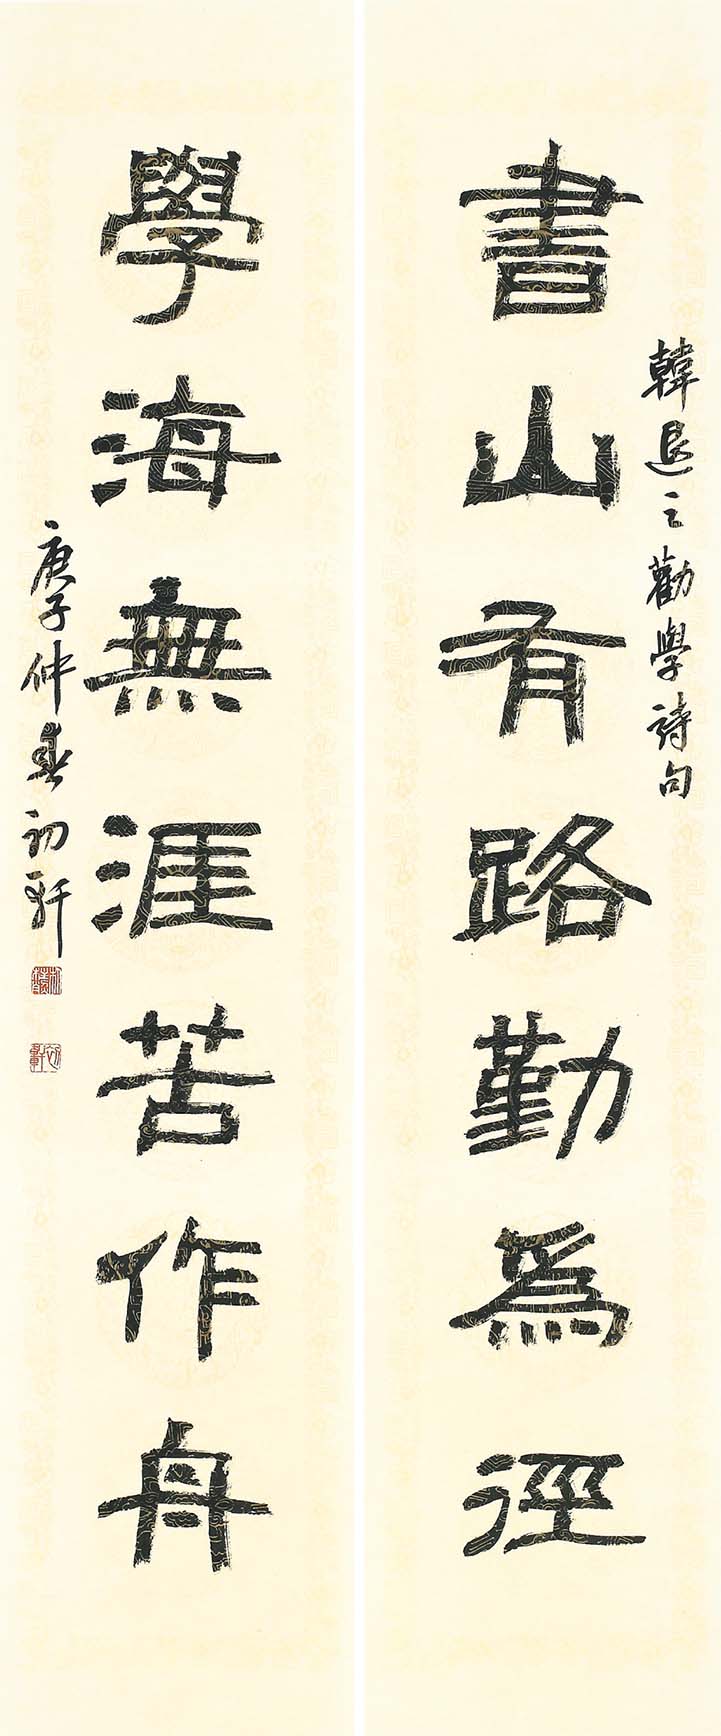 韓退之勸學詩句
書山有路勤為徑
學海無涯苦作舟
庚子仲春初軒